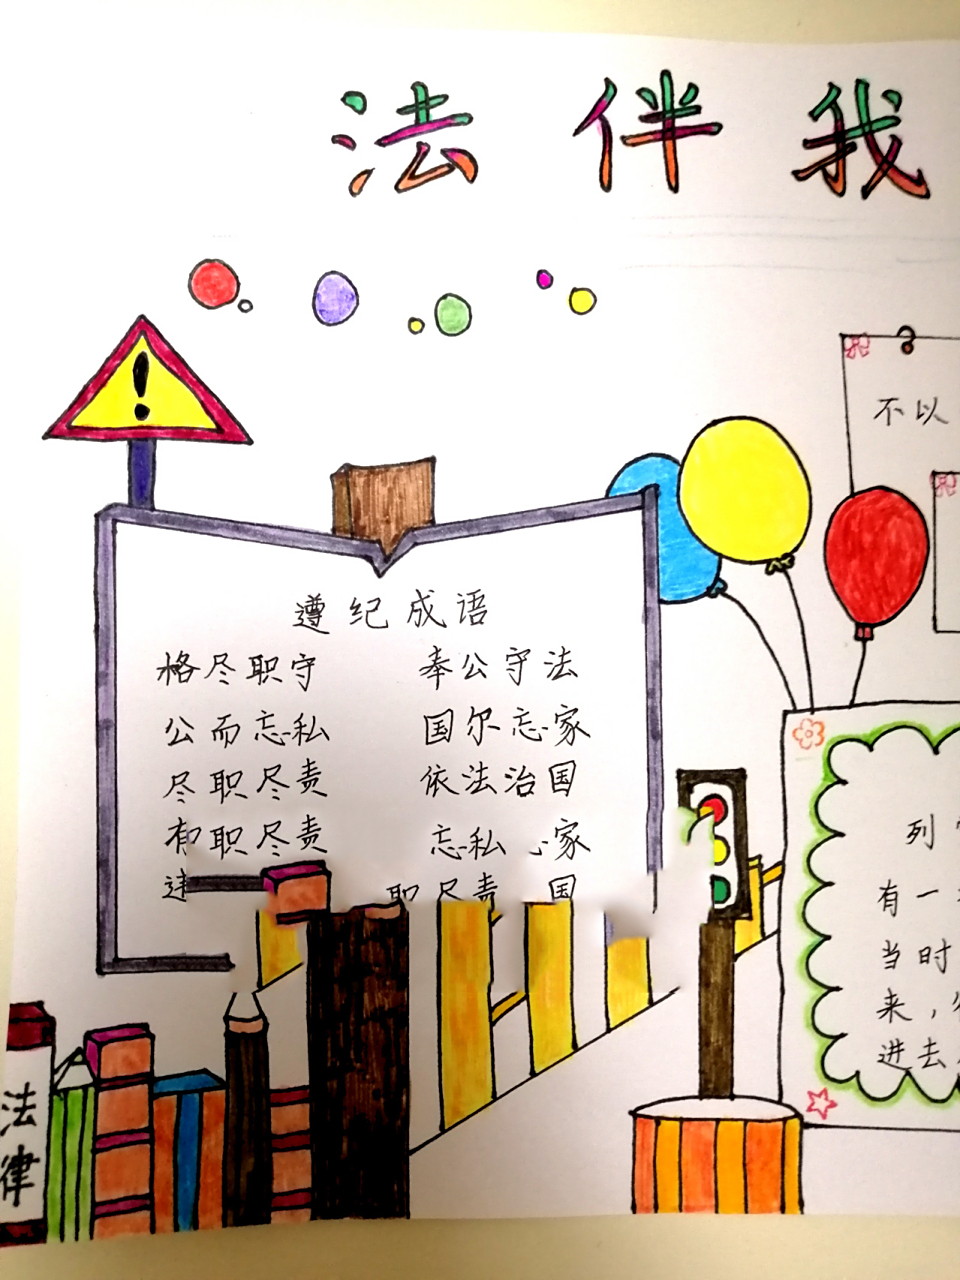 法伴我
不以
遵纪成语
格尽职守 奉公守法
公而忘私 国尔忘家
尽职尽责 依法治国
有职尽责 忘私 家
职尽责 国
列
有一
当时
来,
进去
法律